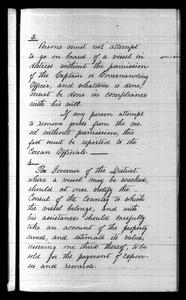 3.
Persons must not attempt
to go on board of a vessel in
distress without the permission
of the Captain or Commanding
Officer, and whatever is done,
must be done in compliance
with his will.
If any person attempt
to remove goods from the ves-
sel without permission, this
fact must be reported to the
Corean Officials.
4.
The Governor of the District
where a vessel may be wrecked,
should at once notify the
Consul of the Country to which
the vessel belongs, and with
his assistance should carefully
take an account of the property
saved, and estimate its value,
reserving one third thereof, to be
sold for the payment of expen-
ses and rewards.